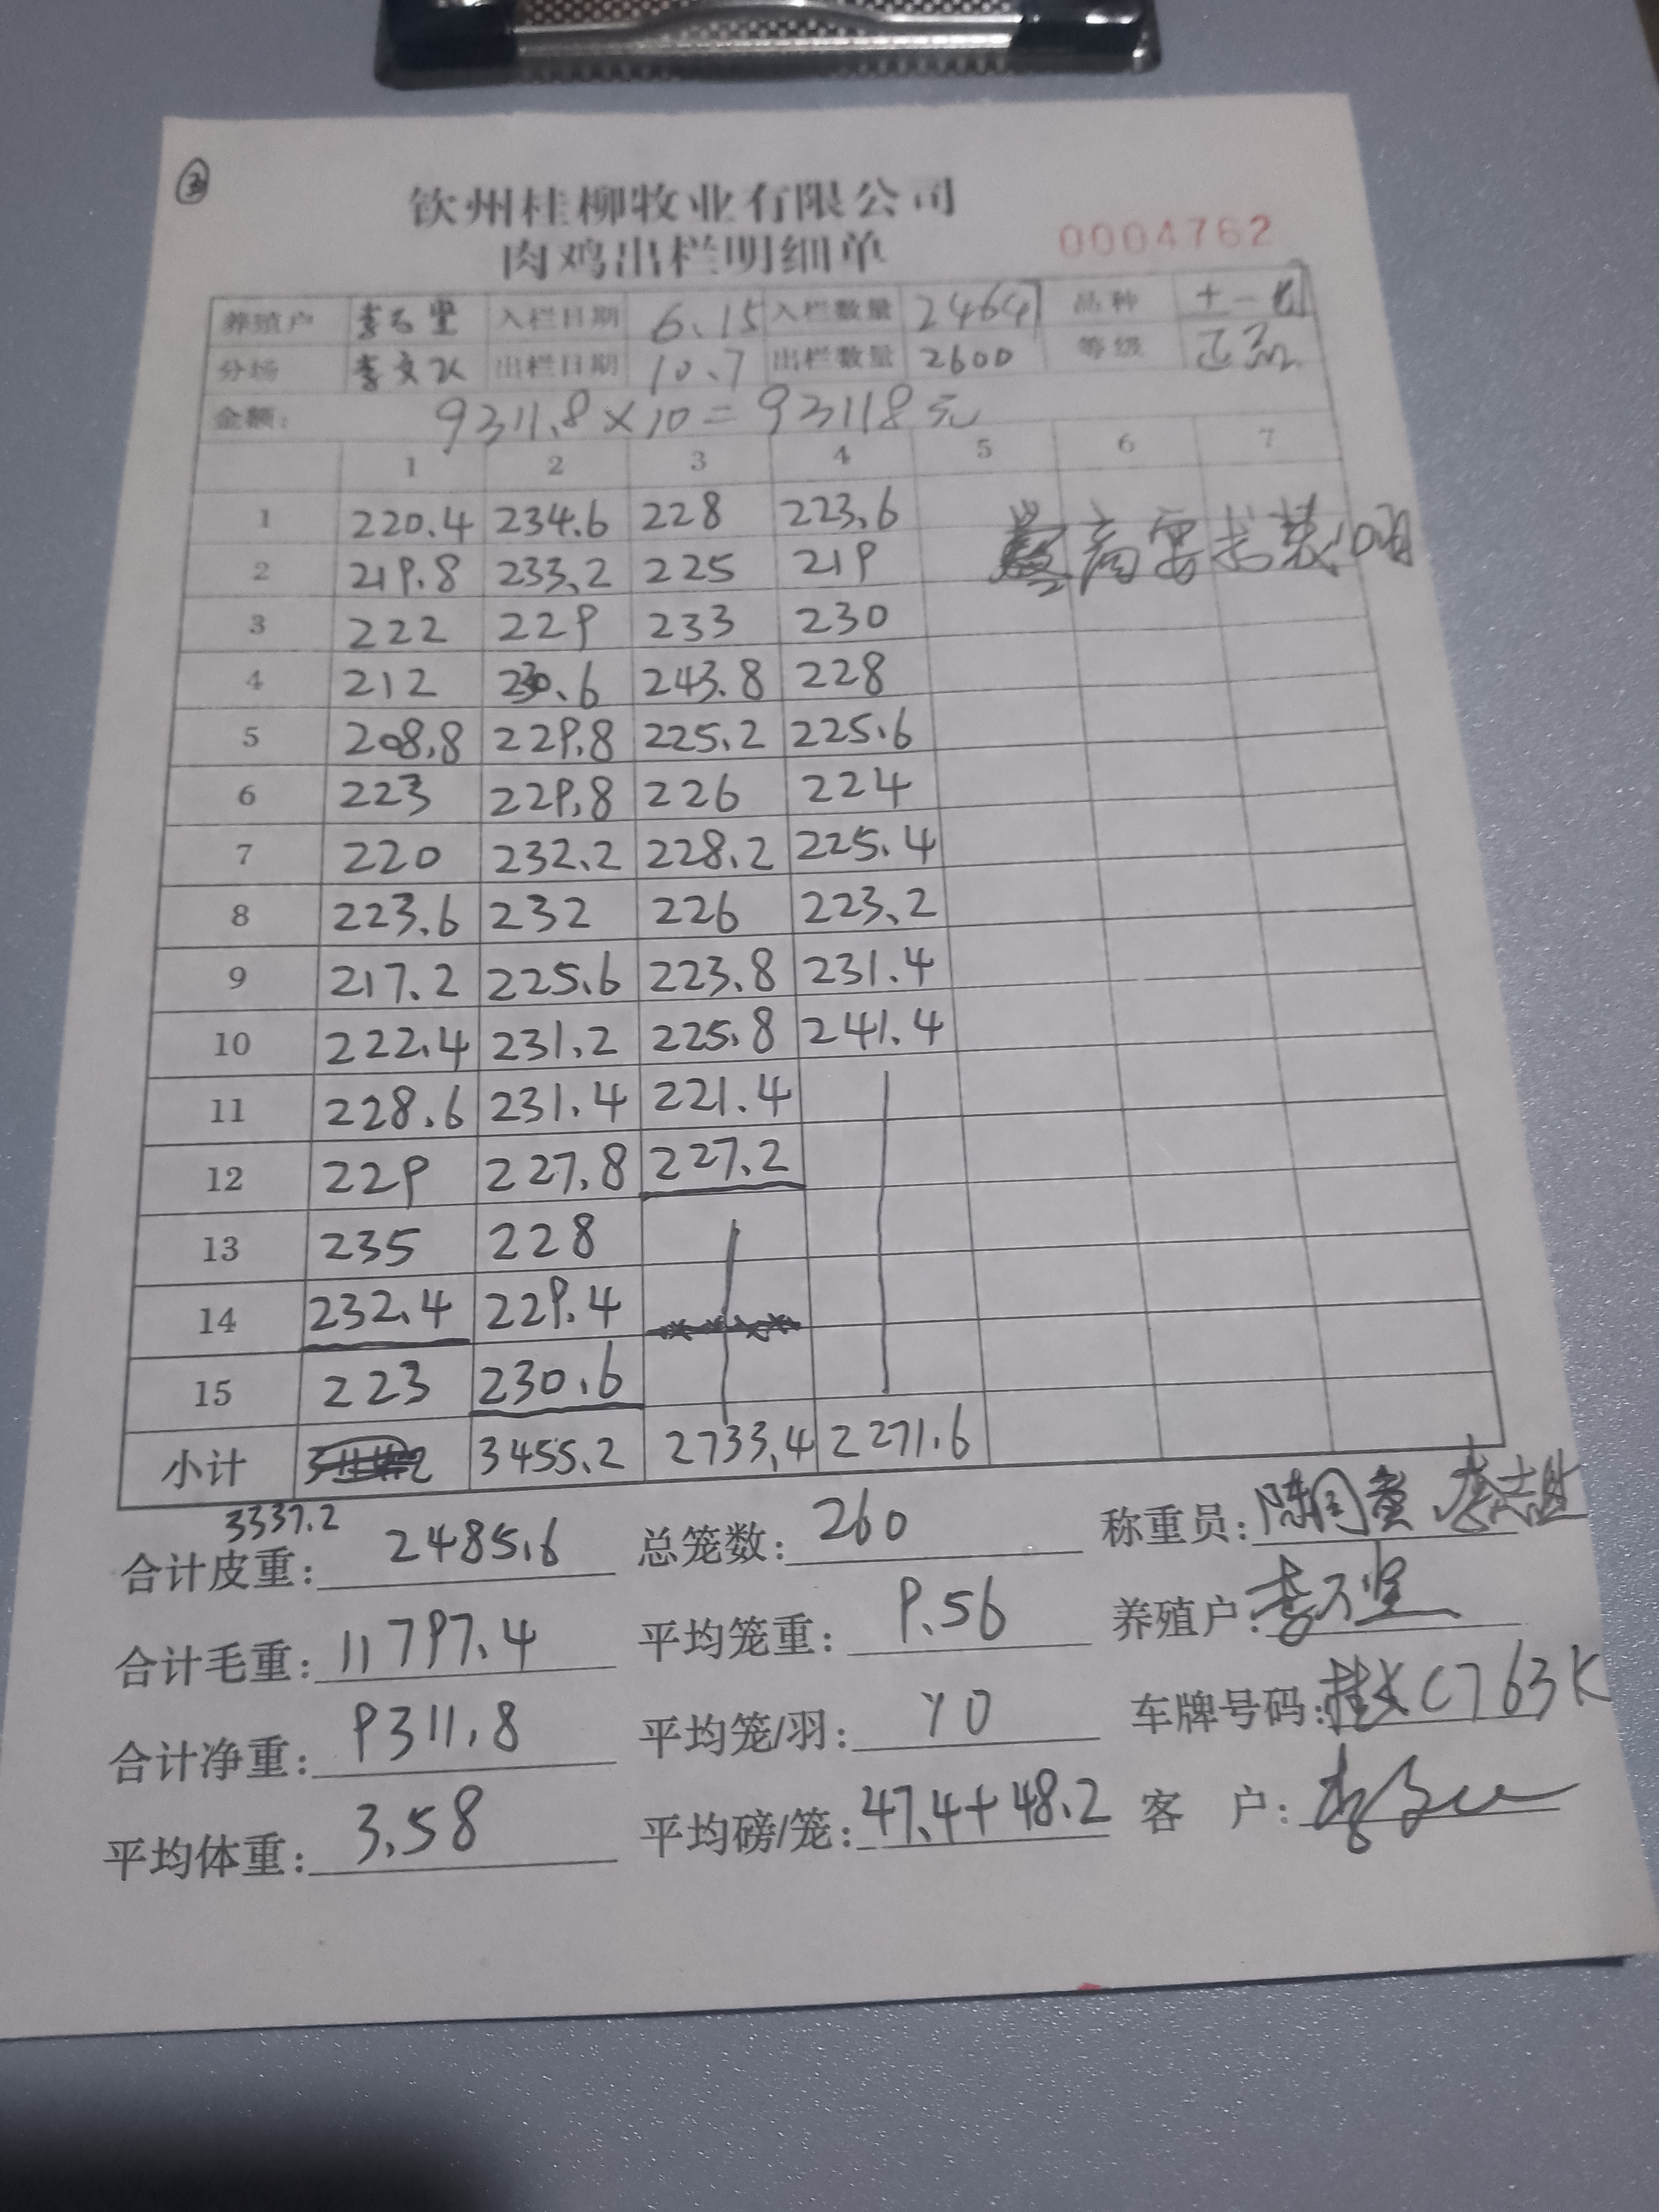 ③
钦州桂柳牧业有限公司
肉鸡出栏明细单 0004762
养殖户 入栏日期 6.15 入栏数量 24641 品种
分场 李文 出栏日期 10.7 出栏数量 2600 等级 正品
金额: 9311.8×10=93118元
1 2 3 4 5 6 7
1 220.4 234.6 228 223.6
2 219.8 233.2 225 219 商要求装10只
3 222 229 233 230
4 212 230.6 243.8 228
5 208.8 229.8 225.2 225.6
6 223 229.8 226 224
7 220 232.2 228.2 225.4
8 223.6 232 226 223.2
9 217.2 225.6 223.8 231.4
10 222.4 231.2 225.8 241.4
11 228.6 231.4 221.4
12 229 227.8 227.2
13 235 228
14 232.4 229.4
15 223 230.6
小计 3455.2 2733.4 2271.6
3337.2
合计皮重: 2485.6 总笼数: 260 称重员:
合计毛重: 11797.4 平均笼重: 9.56 养殖户:
合计净重: 9311.8 平均笼/羽: 10 车牌号码: C763K
平均体重: 3.58 平均磅/笼: 47.4+48.2 客 户: